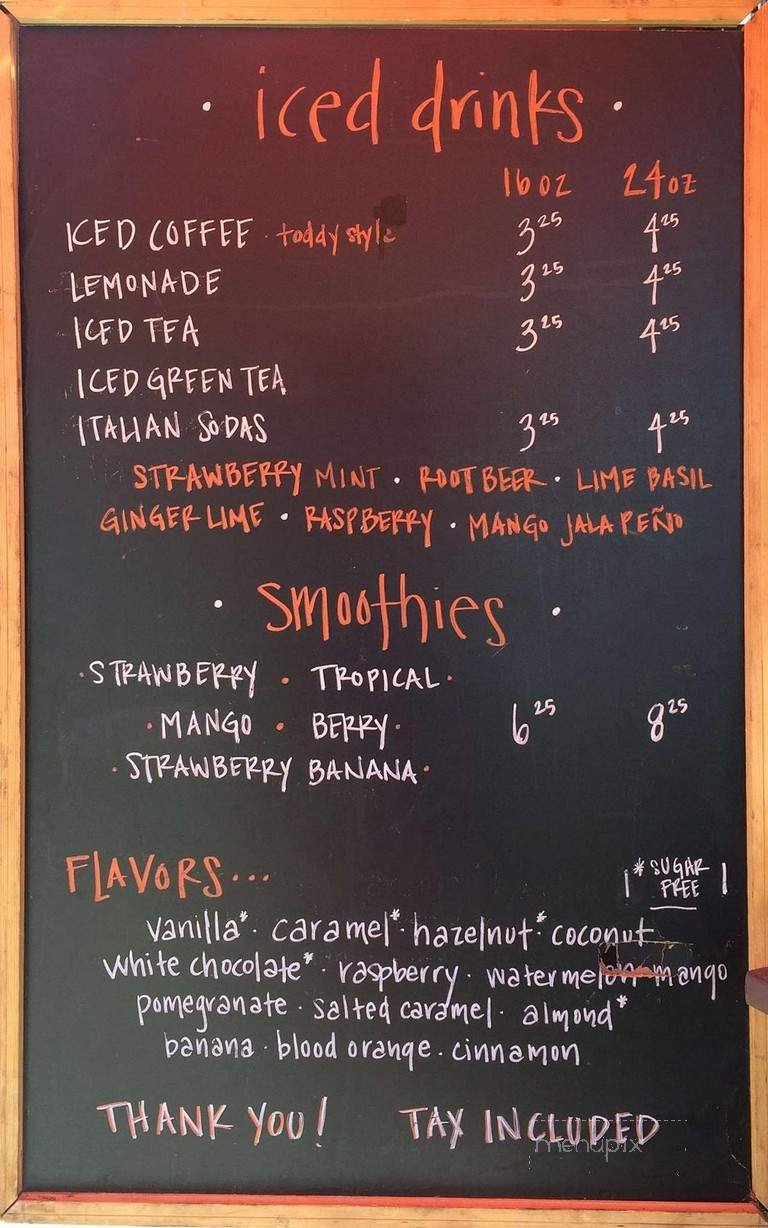 · iced drinks ·
16 oz 24 oz
ICED COFFEE · toddy style 3 25 4 25
LEMONADE 3 25 4 25
ICED TEA 3 25 4 25
ICED GREEN TEA
ITALIAN SODAS 3 25 4 25
STRAWBERRY MINT · ROOT BEER · LIME BASIL
GINGER LIME · RASPBERRY · MANGO JALAPEÑO
· smoothies ·
· STRAWBERRY · TROPICAL ·
· MANGO · BERRY · 6 25 8 25
· STRAWBERRY BANANA ·
FLAVORS... * SUGAR FREE
vanilla* · caramel* · hazelnut* · coconut
white chocolate* · raspberry · watermelon · mango
pomegranate · salted caramel · almond*
banana · blood orange · cinnamon
THANK YOU! TAX INCLUDED
menupix